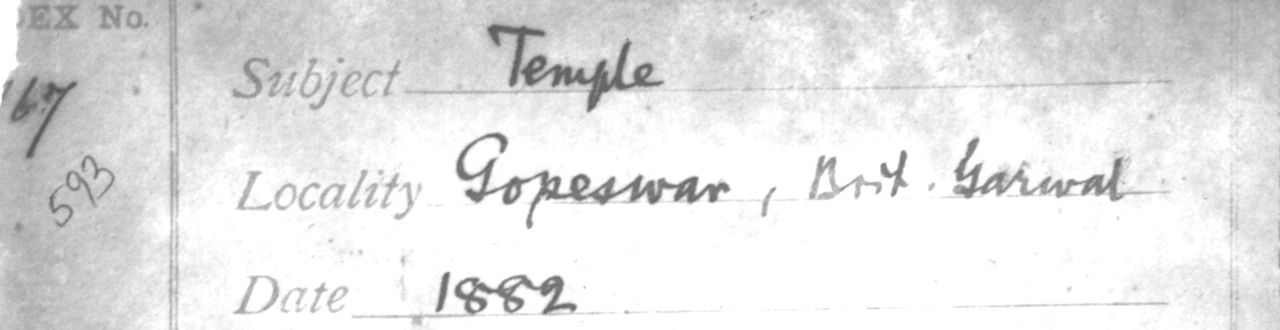 EX No.
Subject Temple
167
Locality Gopeswar, Brit. Garwal
593
Date 1882